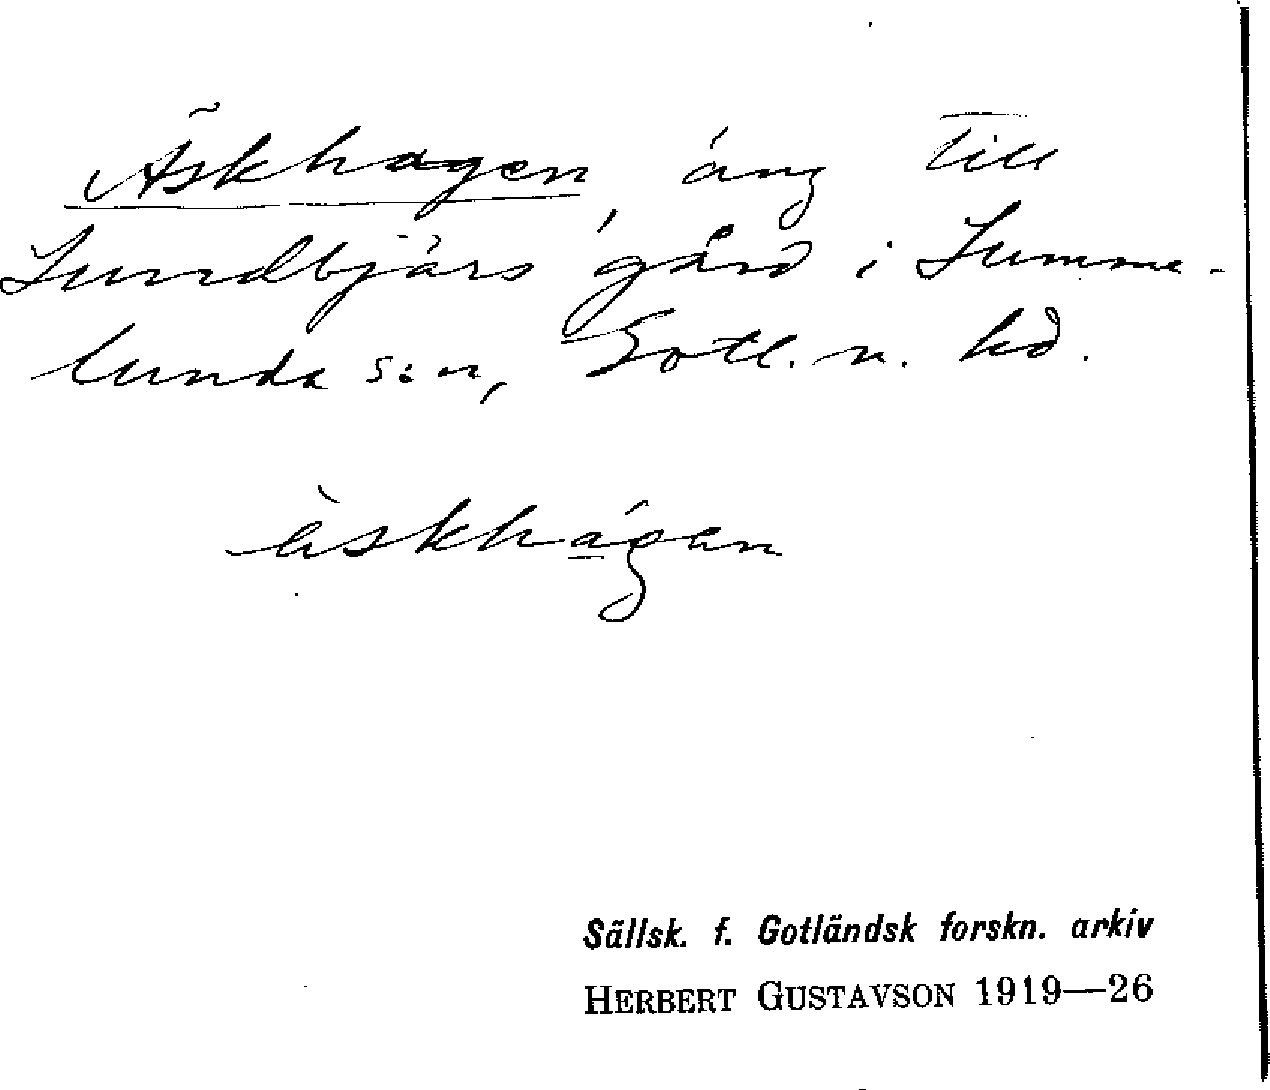 Äskhagen, äng till
Lundbjärs gård i Lumme-
lunda s:n, Gotl. n. hd.
äskhágen
Sällsk. f. Gotländsk forskn. arkiv
HERBERT GUSTAVSON 1919—26